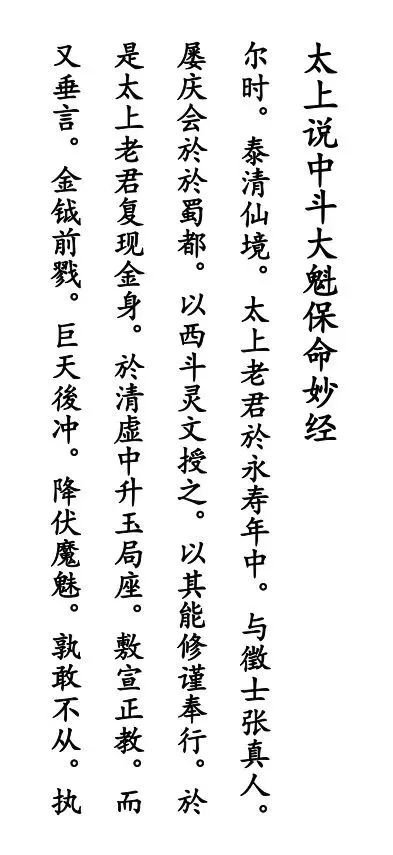 太上说中斗大魁保命妙经
尔时。泰清仙境。太上老君於永寿年中。与徵士张真人。
屡庆会於於蜀都。以西斗灵文授之。以其能修谨奉行。於
是太上老君复现金身。於清虚中升玉局座。敷宣正教。而
又垂言。金钺前戮。巨天後冲。降伏魔魅。孰敢不从。执